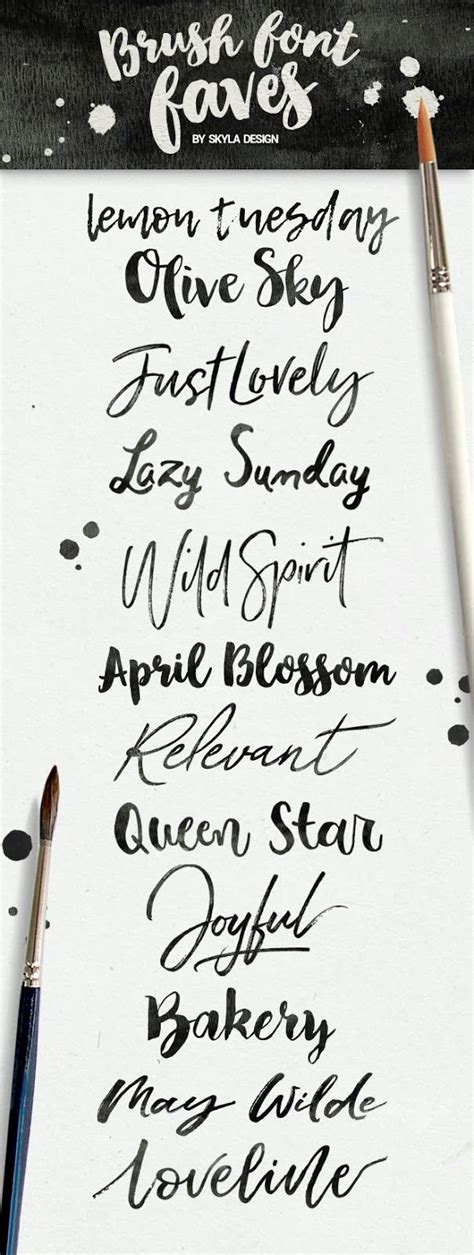 Brush font
faves
BY SKYLA DESIGN
lemon tuesday
Olive Sky
Just Lovely
Lazy Sunday
Wild Spirit
April Blossom
Relevant
Queen Star
Joyful
Bakery
May Wilde
Loveline